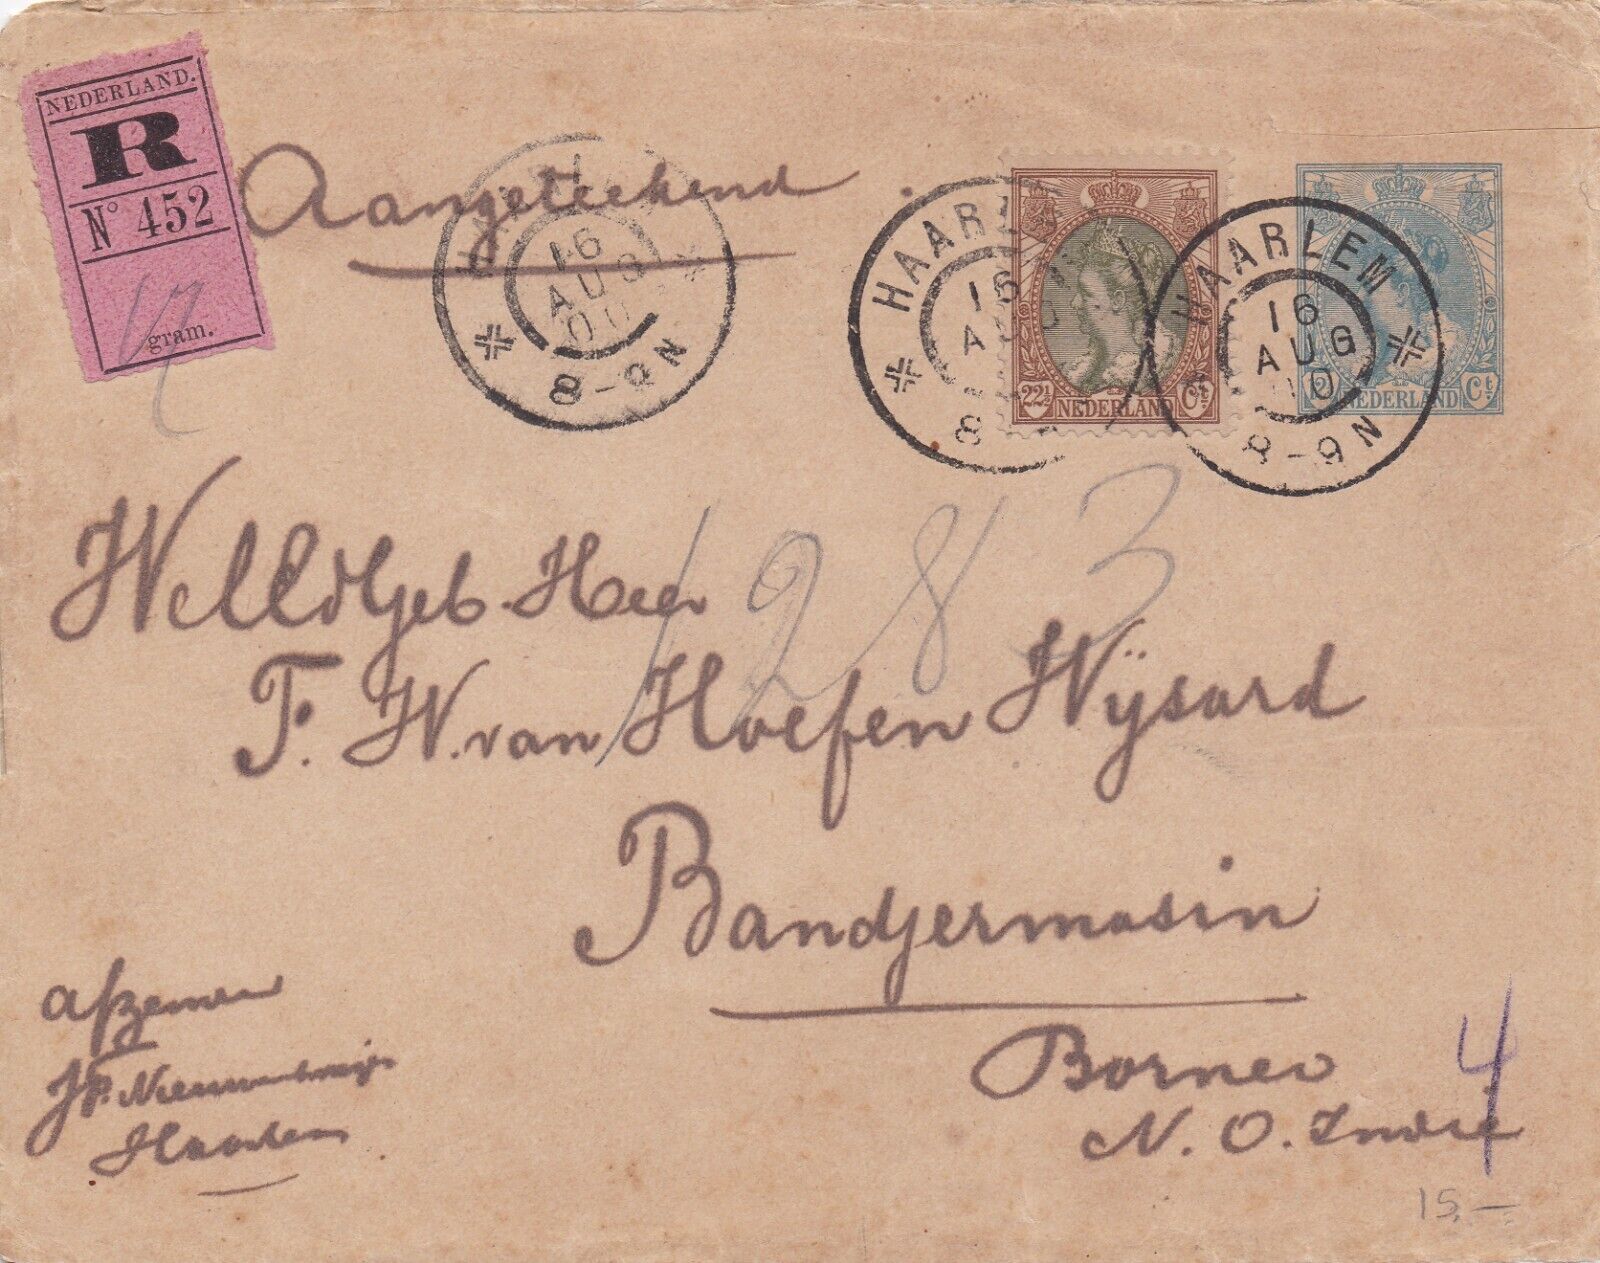 NEDERLAND.
R
N° 452
gram.
Aangeteekend
16
AUG
00
8-9N
HAARLEM
16
8
22½ Ct
NEDERLAND
HAARLEM
16
AUG
00
8-9N
NEDERLAND Ct.
1283
WelEdlGeb. Heer
F. W. van Hoefen Wijsard
Bandjermasin
Borneo
N. O. Indië
4
15,-
afzender
Haarlem